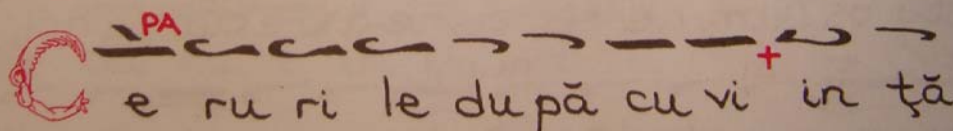 PA
C e ru ri le du pă cu vi in ță